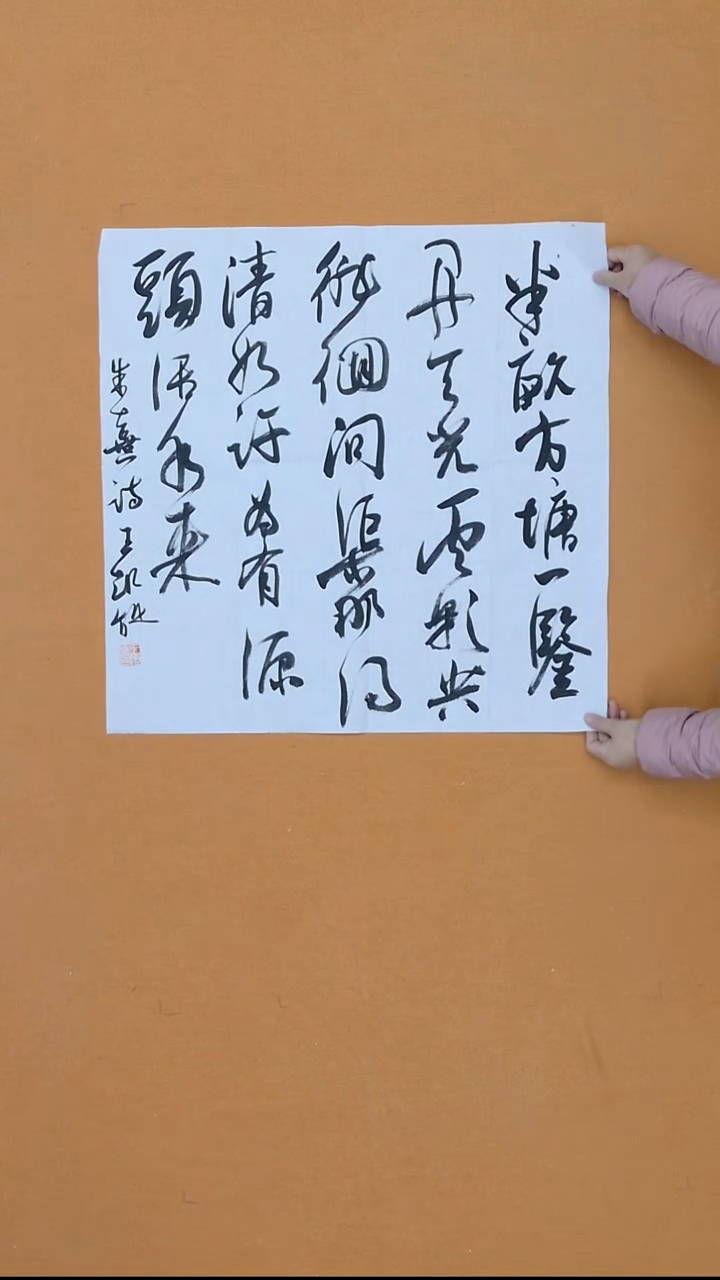 半畝方塘一鑒
開天光雲影共
徘徊問渠那得
清如許為有源
頭活水來
朱熹詩王